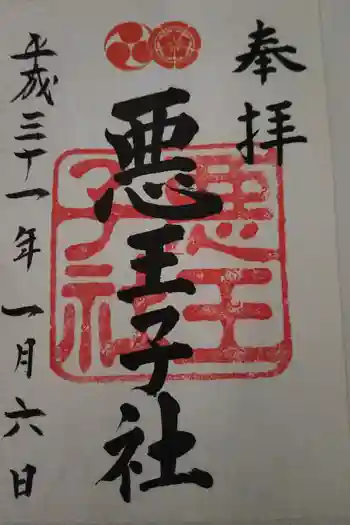 奉拝
悪王子社
平成三十一年一月六日
悪王
子社